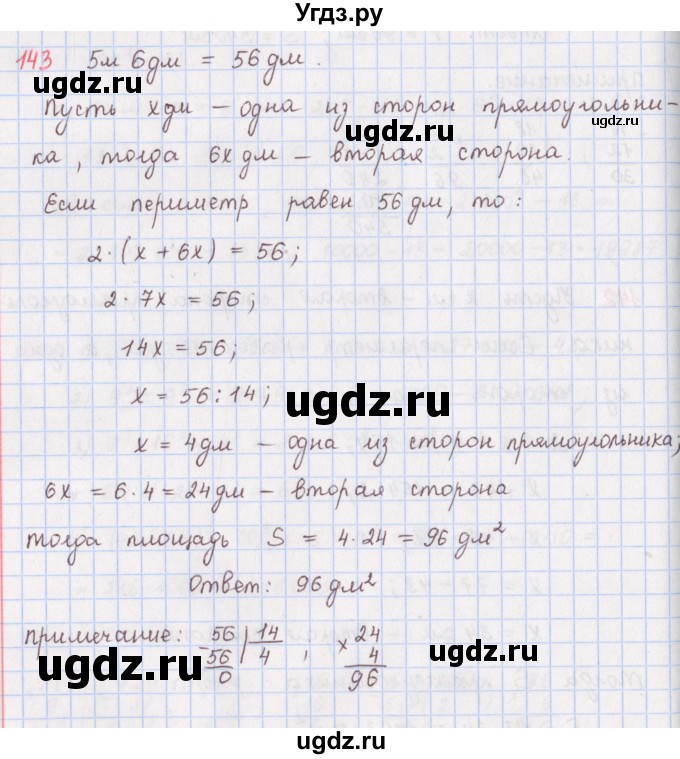 Угдз.ру
143 5м 6дм = 56 дм.
ugdz.ru
ugdz.ru
Пусть x дм – одна из сторон прямоугольни-
ugdz.ru
ка, тогда 6x дм – вторая сторона.
Если периметр равен 56 дм, то:
2·(x + 6x) = 56;
2·7x = 56;
14x = 56;
x = 56:14;
ugdz.ru
x = 4дм – одна из сторон прямоугольника;
6x = 6·4 = 24дм – вторая сторона
тогда площадь S = 4·24 = 96 дм²
Ответ: 96 дм²
ugdz.ru
примечание: 56 | 14 , × 24
ugdz.ru
- 56 4 4
0 96
ugdz.ru